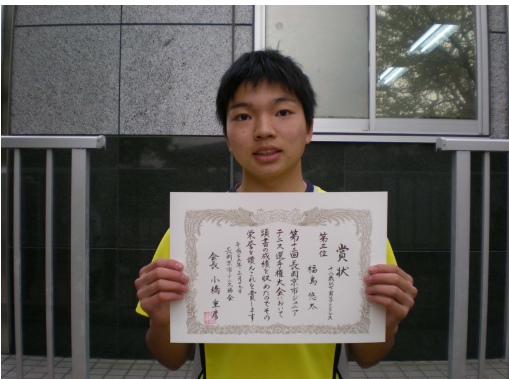 賞状
第三位
福島 悠太
第十三回長岡京市ジュニア
テニス選手権大会において
頭書の成績を収めたのでその
栄誉を讃えこれを賞します
長岡京市テニス協会
会長 小橋 重彦